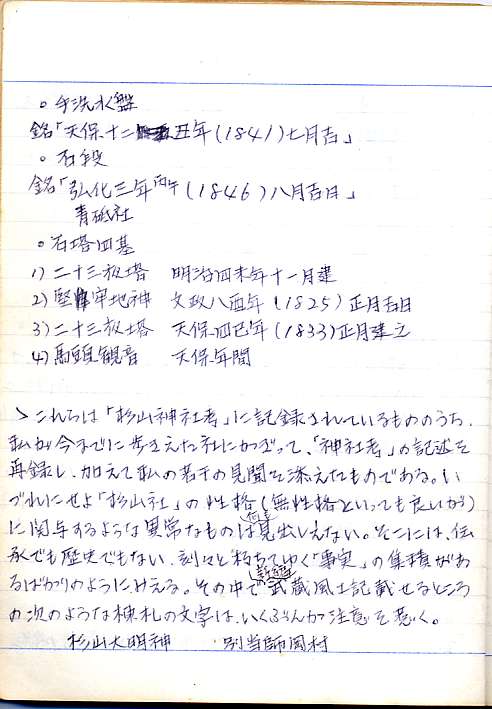 ○手洗水盤
銘「天保十二丑年(1841)七月吉」
○石段
銘「弘化三年丙午(1846)八月吉日」
青砥社
○石塔四基
1) 二十三夜塔 明治四未年十一月建
2) 堅牢地神 文政八酉年(1825)正月吉日
3) 二十三夜塔 天保四巳年(1833)正月建立
4) 馬頭観音 天保年間
これらは「杉山神社考」に記録されているもののうち、
私が今までに歩きえた社にかぎって、「神社考」の記述を
再録し、加えて私の若干の見聞を添えたものである。い
づれにせよ「杉山社」の性格(無性格といっても良いが)
に関与するような異常なものは何も見出しえない。そこには、伝
承でも歴史でもない、刻々と朽ちてゆく「事実」の集積があ
るばかりのようにみえる。その中で新編武蔵風土記載せるところ
の次のような棟札の文字は、いくぶんか注意を惹く。
杉山大明神 別当師岡村